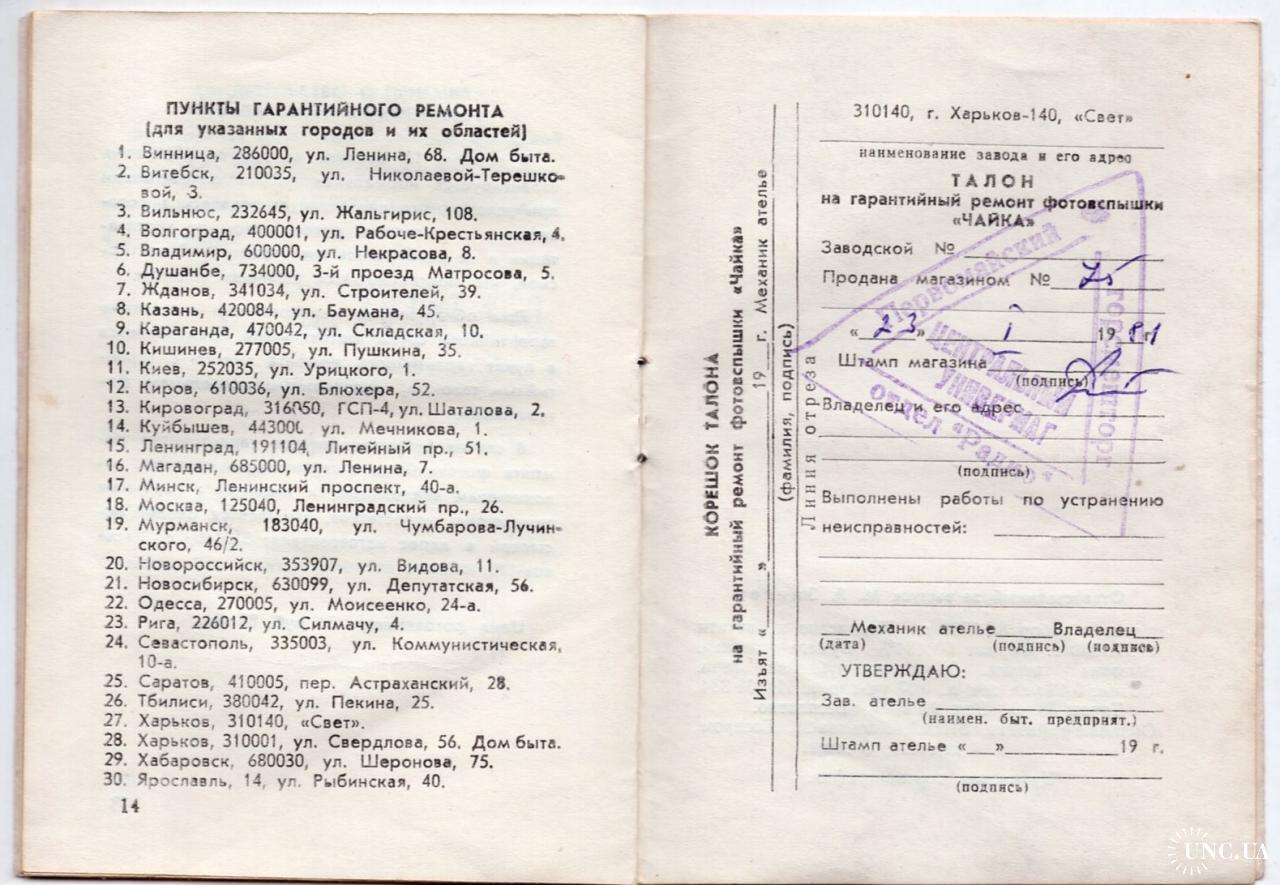 ПУНКТЫ ГАРАНТИЙНОГО РЕМОНТА
(для указанных городов и их областей)
1. Винница, 286000, ул. Ленина, 68. Дом быта.
2. Витебск, 210035, ул. Николаевой-Терешко-
вой, 3.
3. Вильнюс, 232645, ул. Жальгирис, 108.
4. Волгоград, 400001, ул. Рабоче-Крестьянская, 4.
5. Владимир, 600000, ул. Некрасова, 8.
6. Душанбе, 734000, 3-й проезд Матросова, 5.
7. Жданов, 341034, ул. Строителей, 39.
8. Казань, 420084, ул. Баумана, 45.
9. Караганда, 470042, ул. Складская, 10.
10. Кишинев, 277005, ул. Пушкина, 35.
11. Киев, 252035, ул. Урицкого, 1.
12. Киров, 610036, ул. Блюхера, 52.
13. Кировоград, 316050, ГСП-4, ул. Шаталова, 2.
14. Куйбышев, 443000, ул. Мечникова, 1.
15. Ленинград, 191104, Литейный пр., 51.
16. Магадан, 685000, ул. Ленина, 7.
17. Минск, Ленинский проспект, 40-а.
18. Москва, 125040, Ленинградский пр., 26.
19. Мурманск, 183040, ул. Чумбарова-Лучин-
ского, 46/2.
20. Новороссийск, 353907, ул. Видова, 11.
21. Новосибирск, 630099, ул. Депутатская, 56.
22. Одесса, 270005, ул. Моисеенко, 24-а.
23. Рига, 226012, ул. Силмачу, 4.
24. Севастополь, 335003, ул. Коммунистическая,
10-а.
25. Саратов, 410005, пер. Астраханский, 28.
26. Тбилиси, 380042, ул. Пекина, 25.
27. Харьков, 310140, «Свет».
28. Харьков, 310001, ул. Свердлова, 56. Дом быта.
29. Хабаровск, 680030, ул. Шеронова, 75.
30. Ярославль, 14, ул. Рыбинская, 40.
14
КОРЕШОК ТАЛОНА
на гарантийный ремонт фотовспышки «Чайка»
Изъят «___»______19___г. Механик ателье
(фамилия, подпись)
Линия отреза
310140, г. Харьков-140, «Свет»
наименование завода и его адрес
ТАЛОН
на гарантийный ремонт фотовспышки
«ЧАЙКА»
Заводской №
Продана магазином № 75
«23» I 1981 г.
Штамп магазина
(подпись)
Владелец и его адрес
(подпись)
Выполнены работы по устранению
неисправностей:
___Механик ателье______Владелец___
(дата) (подпись) (подпись)
УТВЕРЖДАЮ:
Зав. ателье
(наимен. быт. предприят.)
Штамп ателье «___»__________19 г.
(подпись)
Первомайский
ЦЕНТРАЛЬНЫЙ
УНИВЕРМАГ
отдел "Радио"
UNC.UA